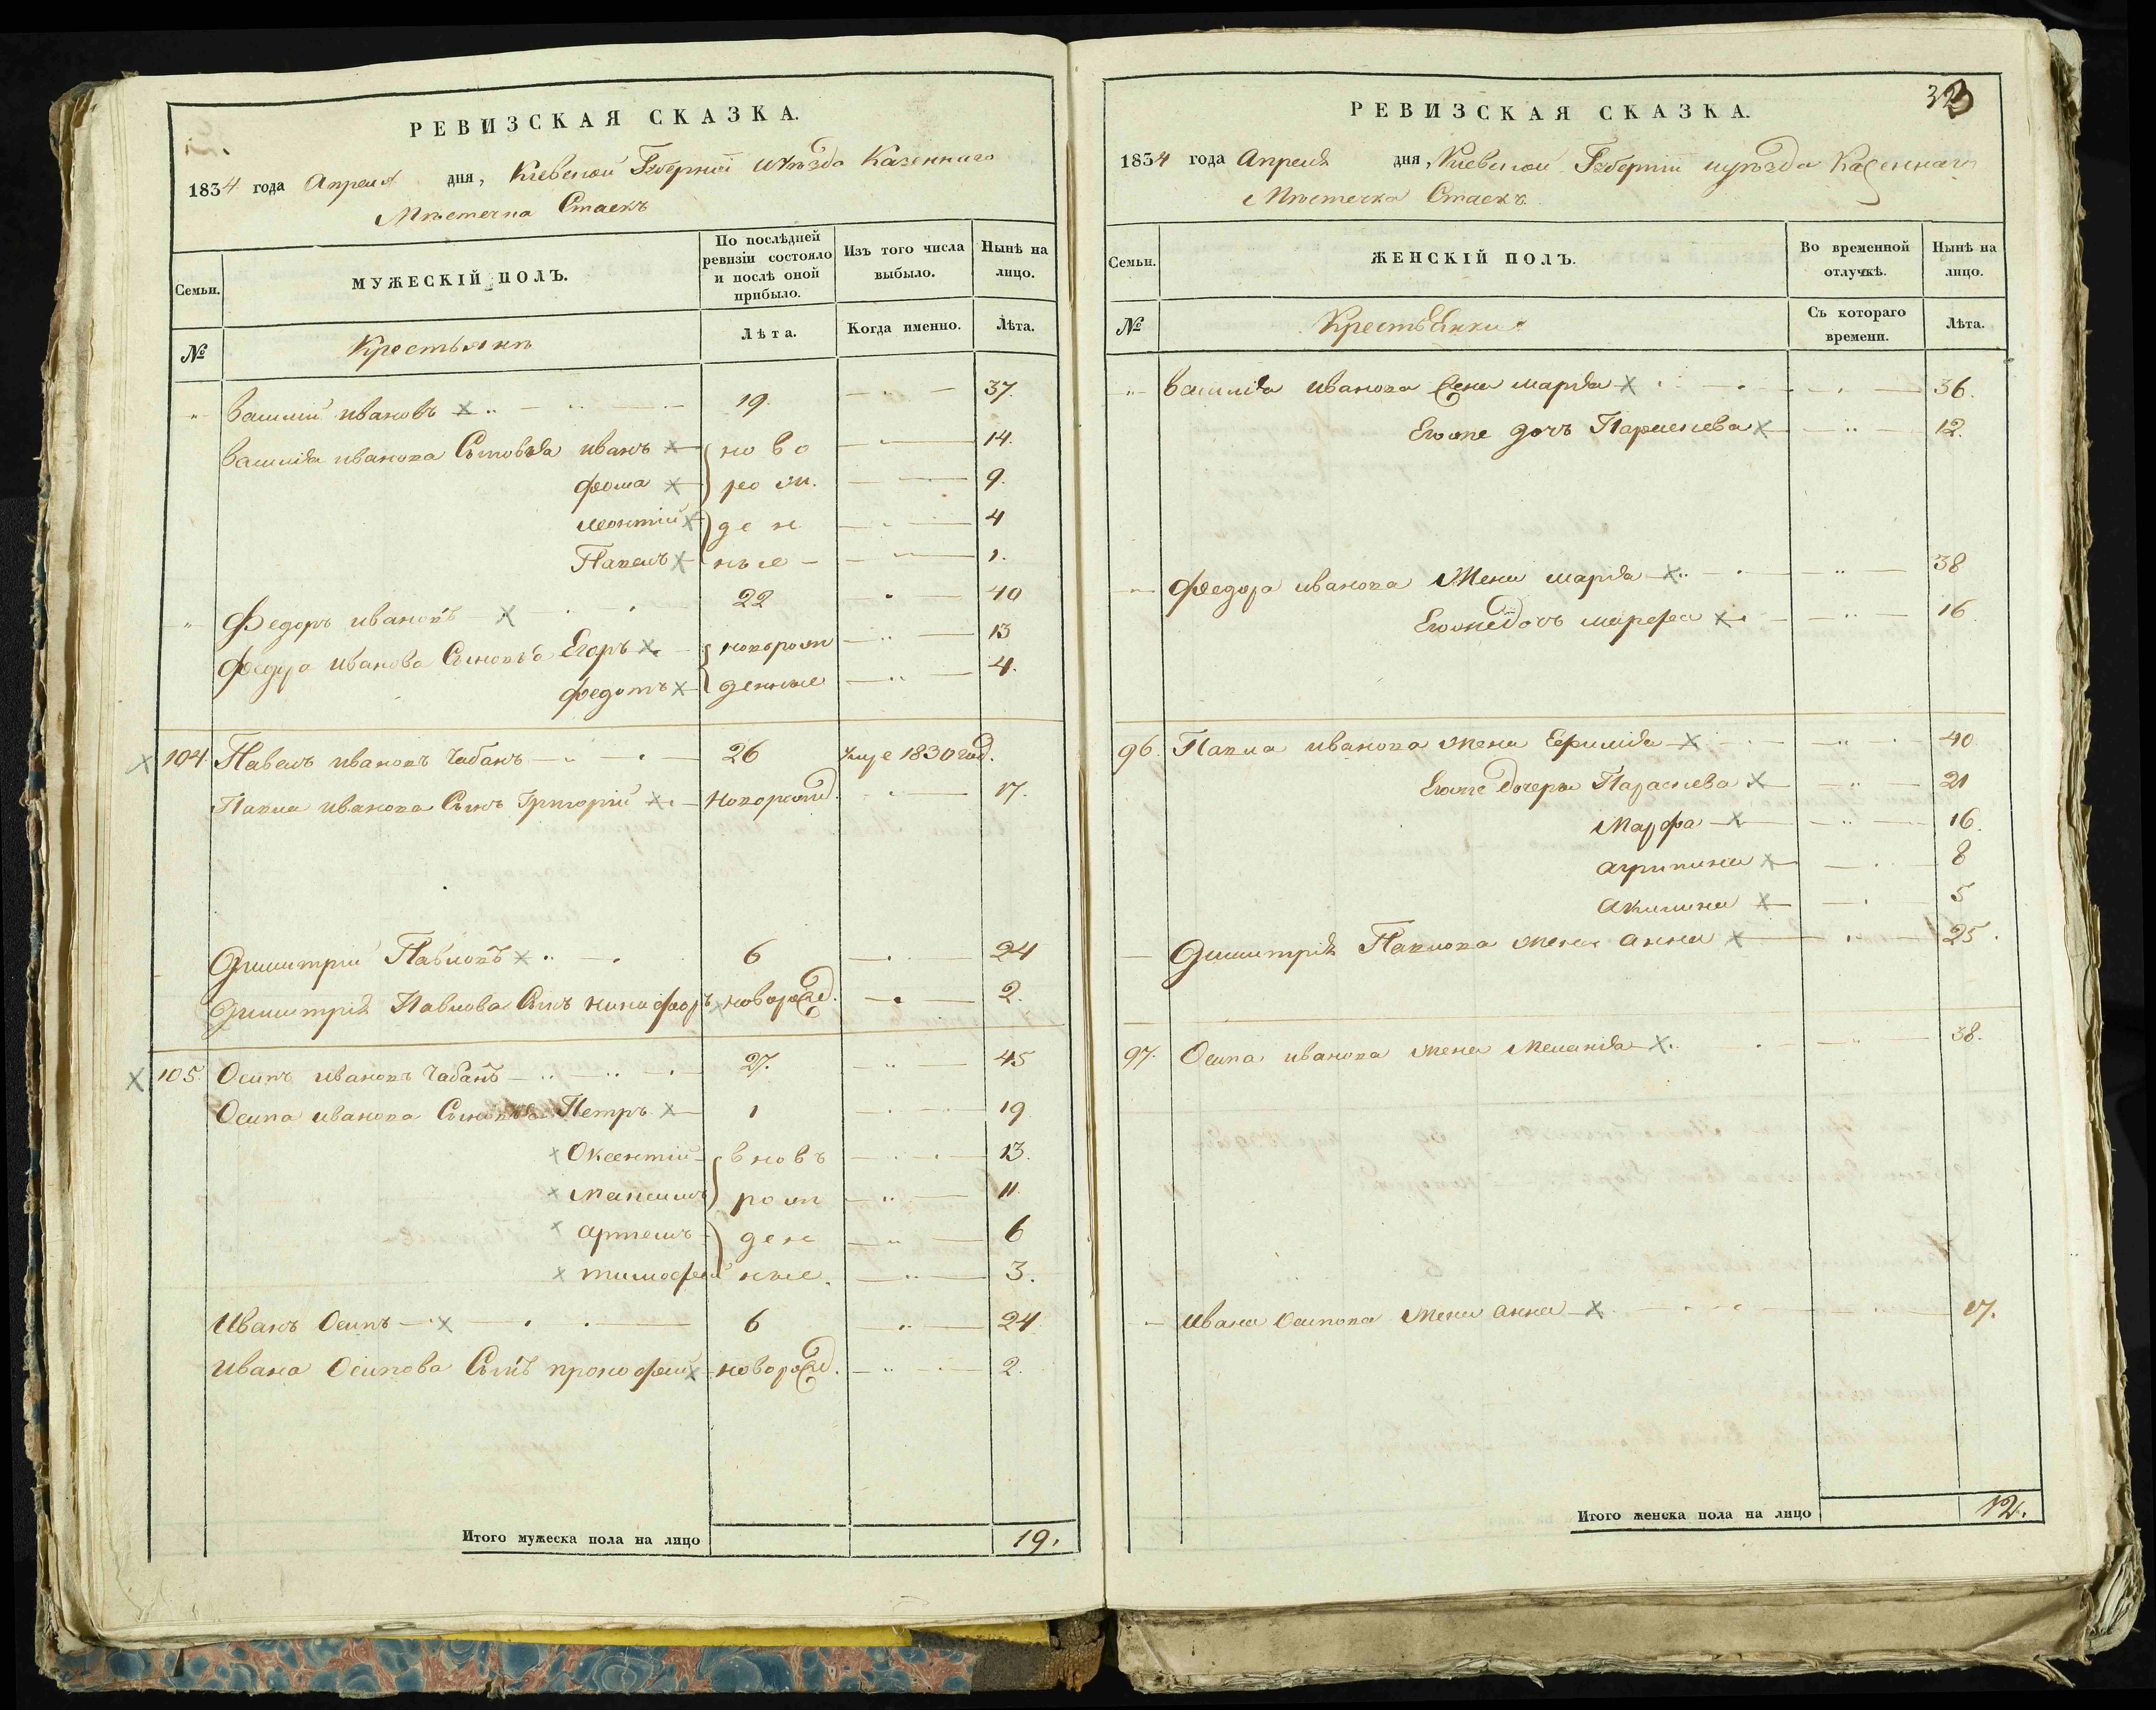 РЕВИЗСКАЯ СКАЗКА.
1834 года Апреля дня, Кіевской Губерніи уѣзда Казеннаго
Мѣстечка Стаекъ
Семьи.
МУЖЕСКІЙ ПОЛЪ.
По послѣдней ревизіи состояло и послѣ оной прибыло.
Изъ того числа выбыло.
Нынѣ на лицо.
№
Крестьянъ
Лѣта.
Когда именно.
Лѣта.
" Василій Ивановъ 19. 37.
Василія Иванова Сыновья Иванъ ново 14.
Фома рож 9.
Леонтій ден 4
Павелъ ные 1.
" Федоръ Ивановъ 22 40
Федора Иванова Сыновья Егоръ новорож 13
Федотъ денные 4.
104 Павелъ Ивановъ Чабанъ 26 умре 1830 год.
Павла Иванова Сынъ Григорій новорожд. 17.
Димитрій Павловъ 6 24
Димитрія Павлова Сынъ Никифоръ новорожд. 2.
105 Осипъ Ивановъ Чабанъ 27. 45
Осипа Иванова Сыновья Петръ 1 19
Оксентій вновь 13.
Максимъ рож 11
Артемъ ден 6
Тимофей ные. 3.
Иванъ Осипъ 6 24
Ивана Осипова Сынъ Прокофей новорожд. 2.
Итого мужеска пола на лицо 19.
33
РЕВИЗСКАЯ СКАЗКА.
1834 года Апреля дня, Кіевской Губерніи уѣзда Казеннаго
Мѣстечка Стаекъ
Семьи.
ЖЕНСКІЙ ПОЛЪ.
Во временной отлучкѣ.
Нынѣ на лицо.
№
Крестьянки
Съ котораго времени.
Лѣта.
" Василія Иванова жена Марія 36.
Егоже дочь Параскева 12.
" Федора Иванова Жена Марія 38
Егоже дочь Марфа 16
96. Павла Иванова жена Ефимія 40
Егоже дочери Параскева 21
Марфа 16.
Агрипина 8
Акилина 5
Димитрія Павлова жена Анна 25.
97. Осипа Иванова жена Меланія 38.
Ивана Осипова жена Анна 27.
Итого женска пола на лицо 12.